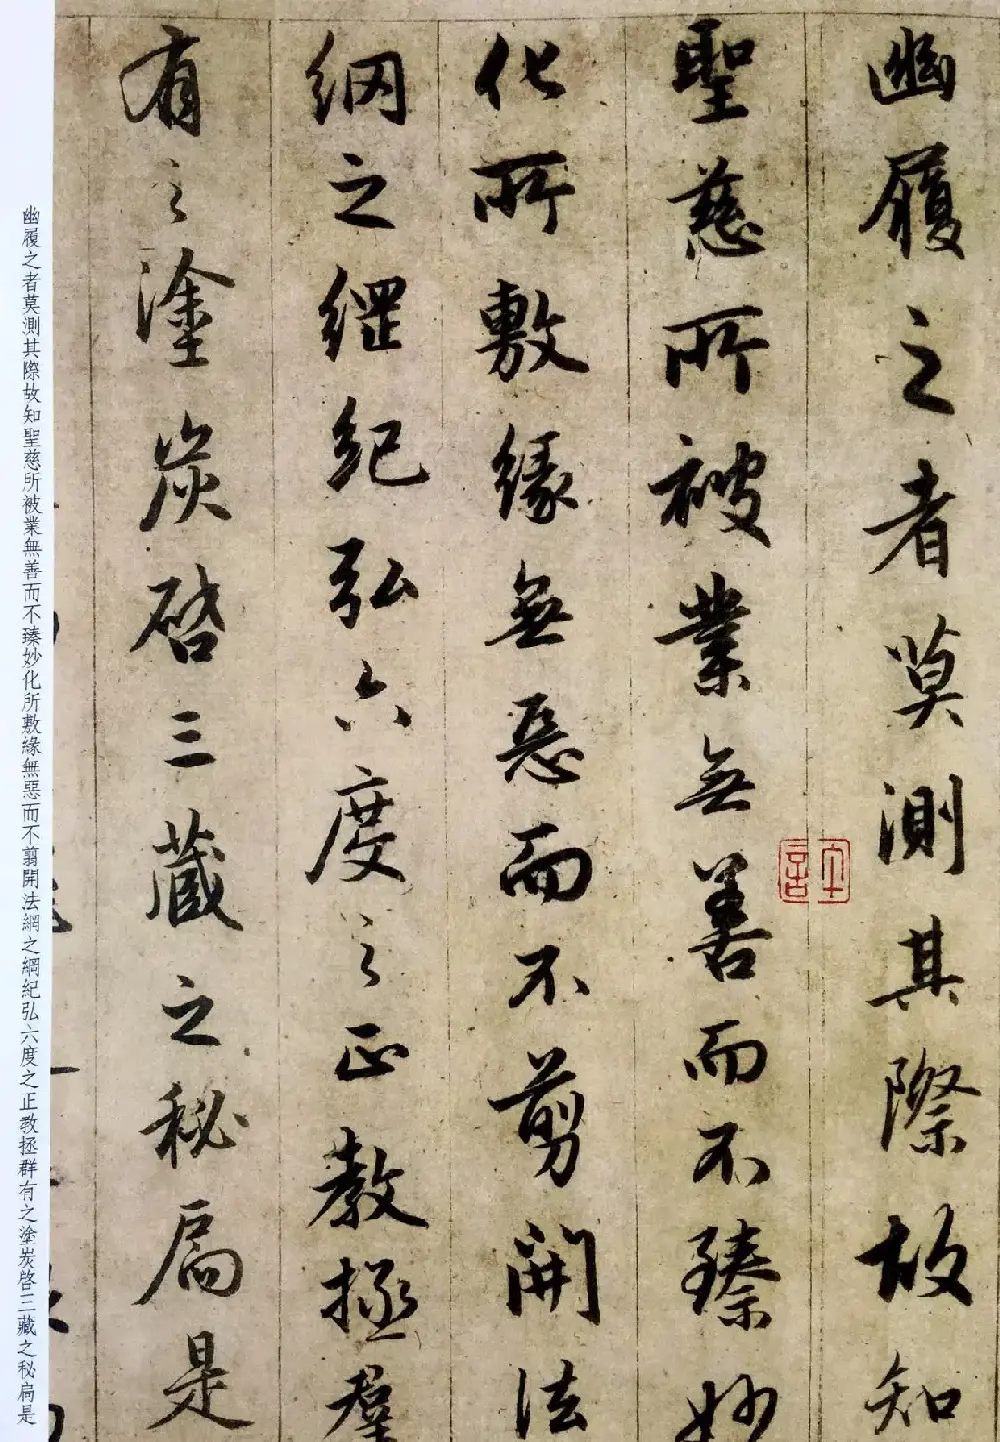 幽履之者莫測其際故知
聖慈所被業無善而不臻妙
化所敷緣無惡而不剪開法
網之綱紀弘六度之正教拯羣
有之塗炭啓三藏之秘扃是
幽履之者莫測其際故知聖慈所被業無善而不臻妙化所敷緣無惡而不翦開法網之綱紀弘六度之正教拯群有之塗炭啓三藏之秘扃是